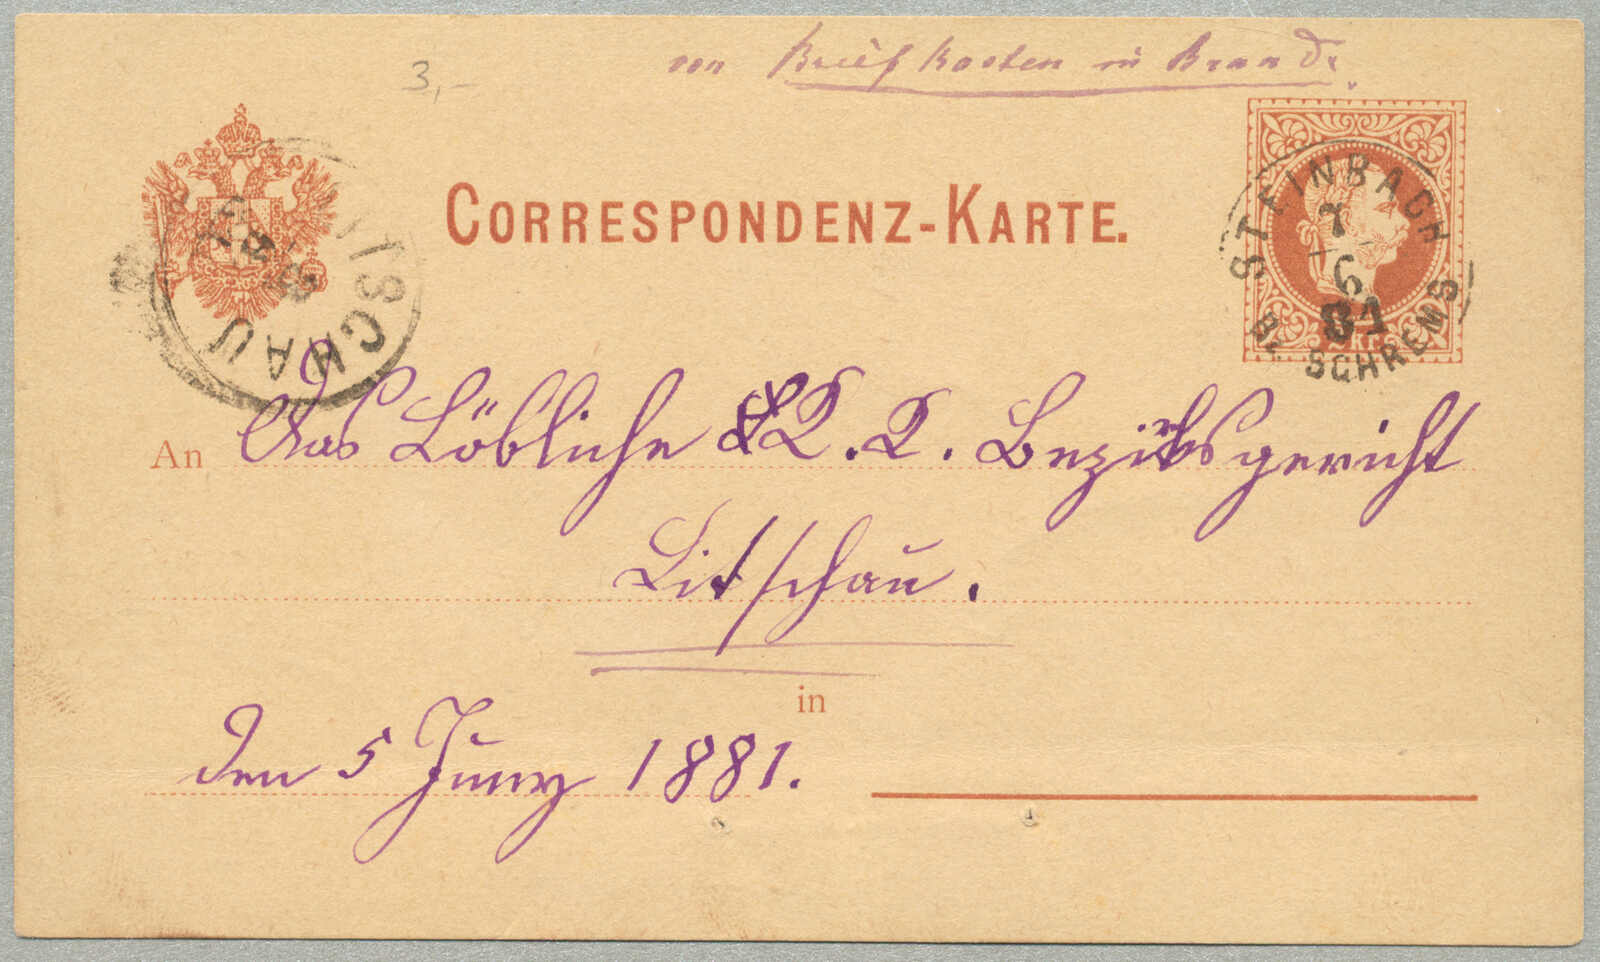 von Briefkasten in Brand.
3,-
CORRESPONDENZ-KARTE.
STEINBACH
7
6
81
B. SCHREMS
2 Kr.
LITSCHAU
An Das Löbliche K. K. Bezirksgericht
Litschau.
in
den 5 Juny 1881.